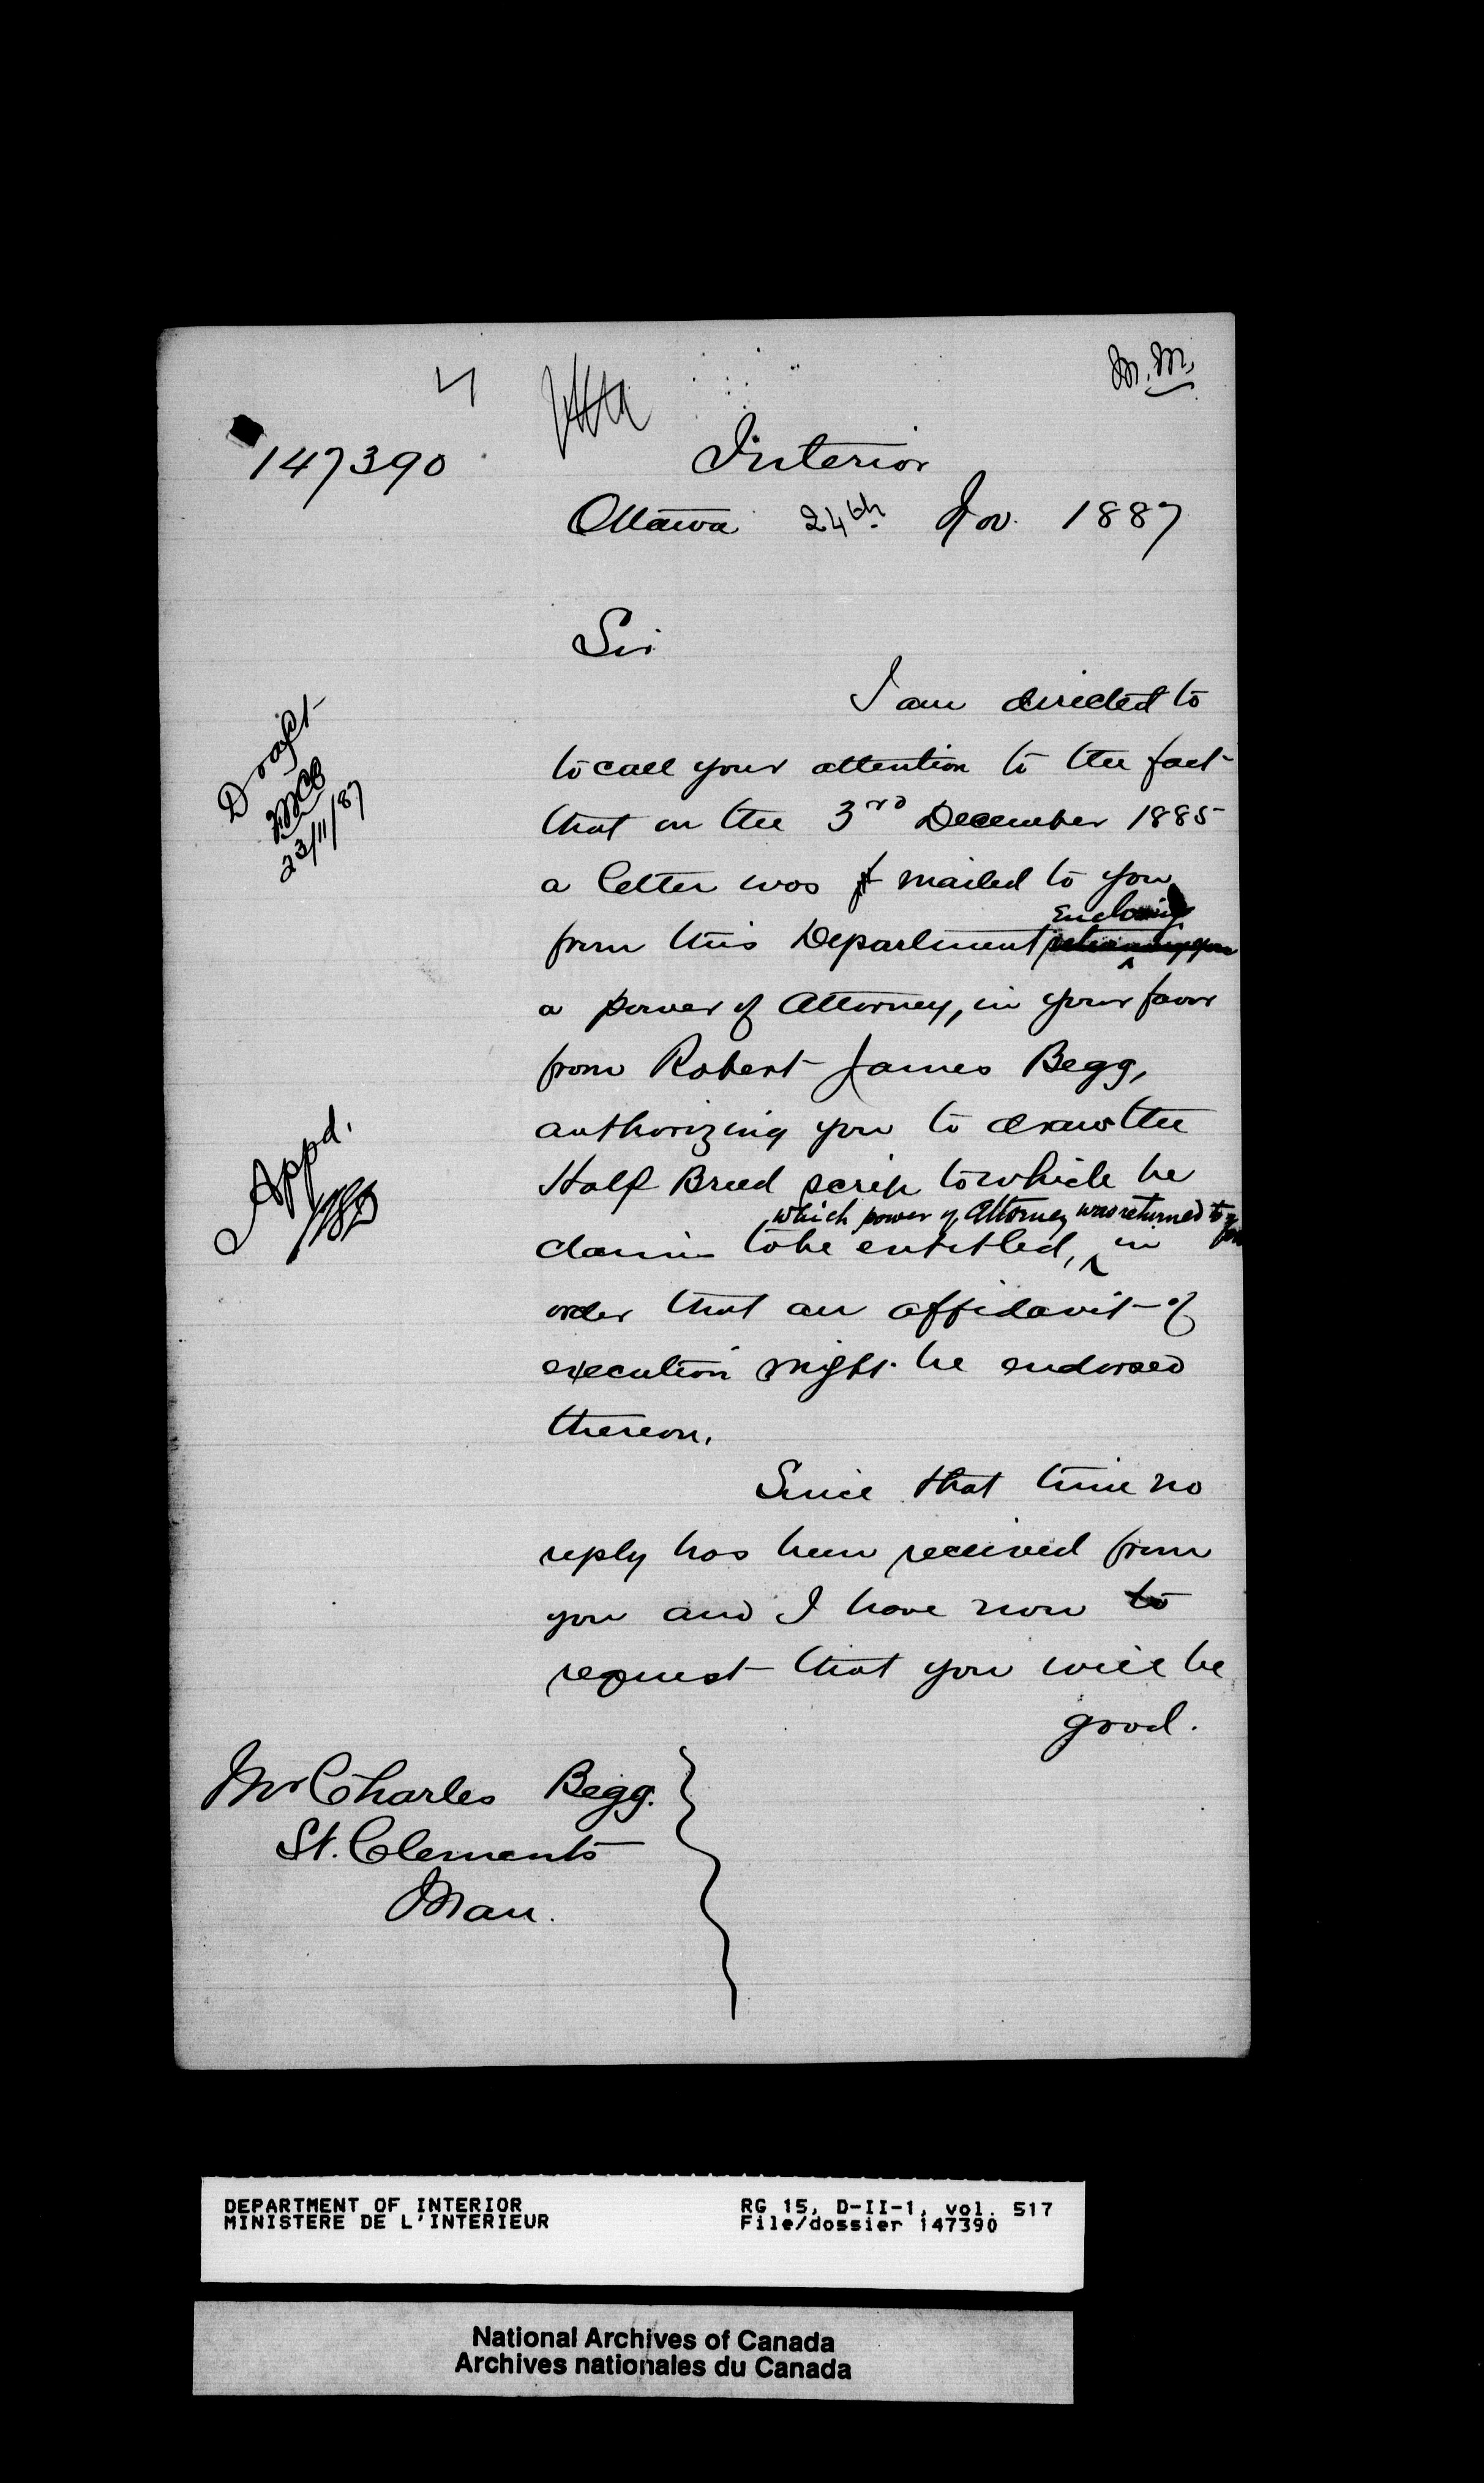 M.M.
147390
Interior
Ottawa 24th Nov. 1887
Sir
I am directed to
to call your attention to the fact
that on the 3rd December 1885
a letter was mailed to you
enclosing
from this Department
a power of Attorney, in your favor
from Robert James Begg,
authorizing you to draw the
Half Breed scrip to which he
which power of Attorney was returned to you
claims to be entitled, ^ in
order that an affidavit of
execution might be endorsed
thereon.
Since that time no
reply has been received from
you and I have now to
request that you will be
good.
Draft
23/11/87
Appd.
Mr Charles Begg.
St. Clements
Man.
DEPARTMENT OF INTERIOR
MINISTERE DE L'INTERIEUR
RG 15, D-II-1, vol. 517
File/dossier 147390
National Archives of Canada
Archives nationales du Canada